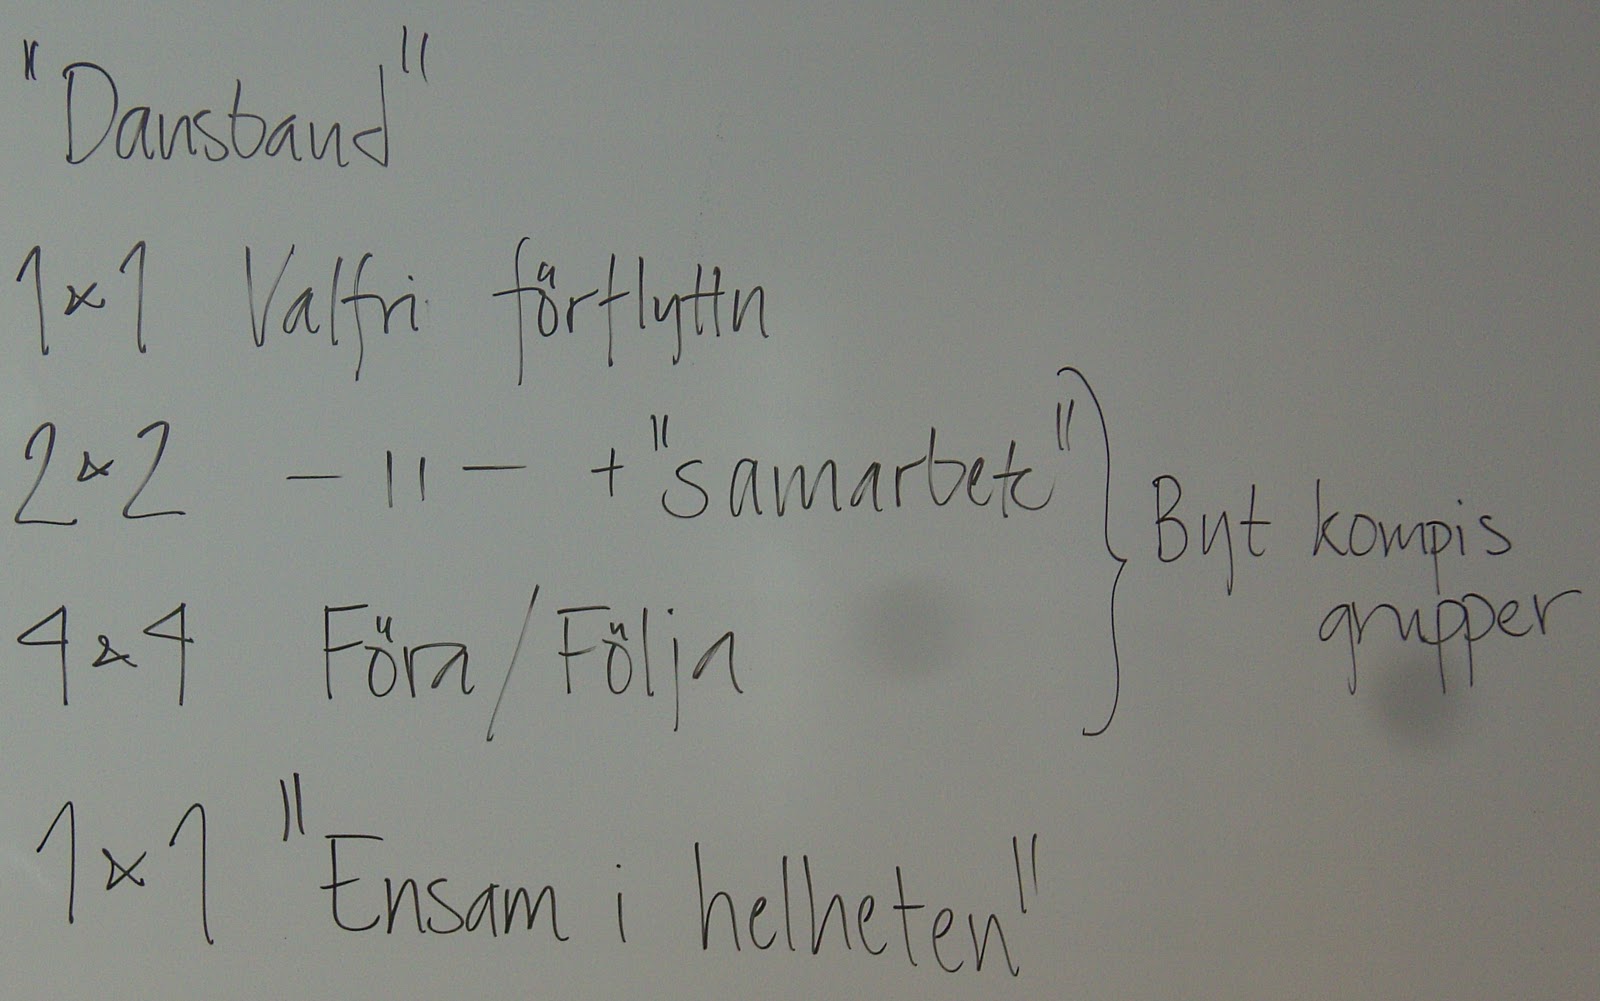 "Dansband"
1x1 Valfri förflyttn
2x2 - 11 - + "samarbete"
4x4 Föra/Följa
Byt kompis
grupper
1x1 "Ensam i helheten"